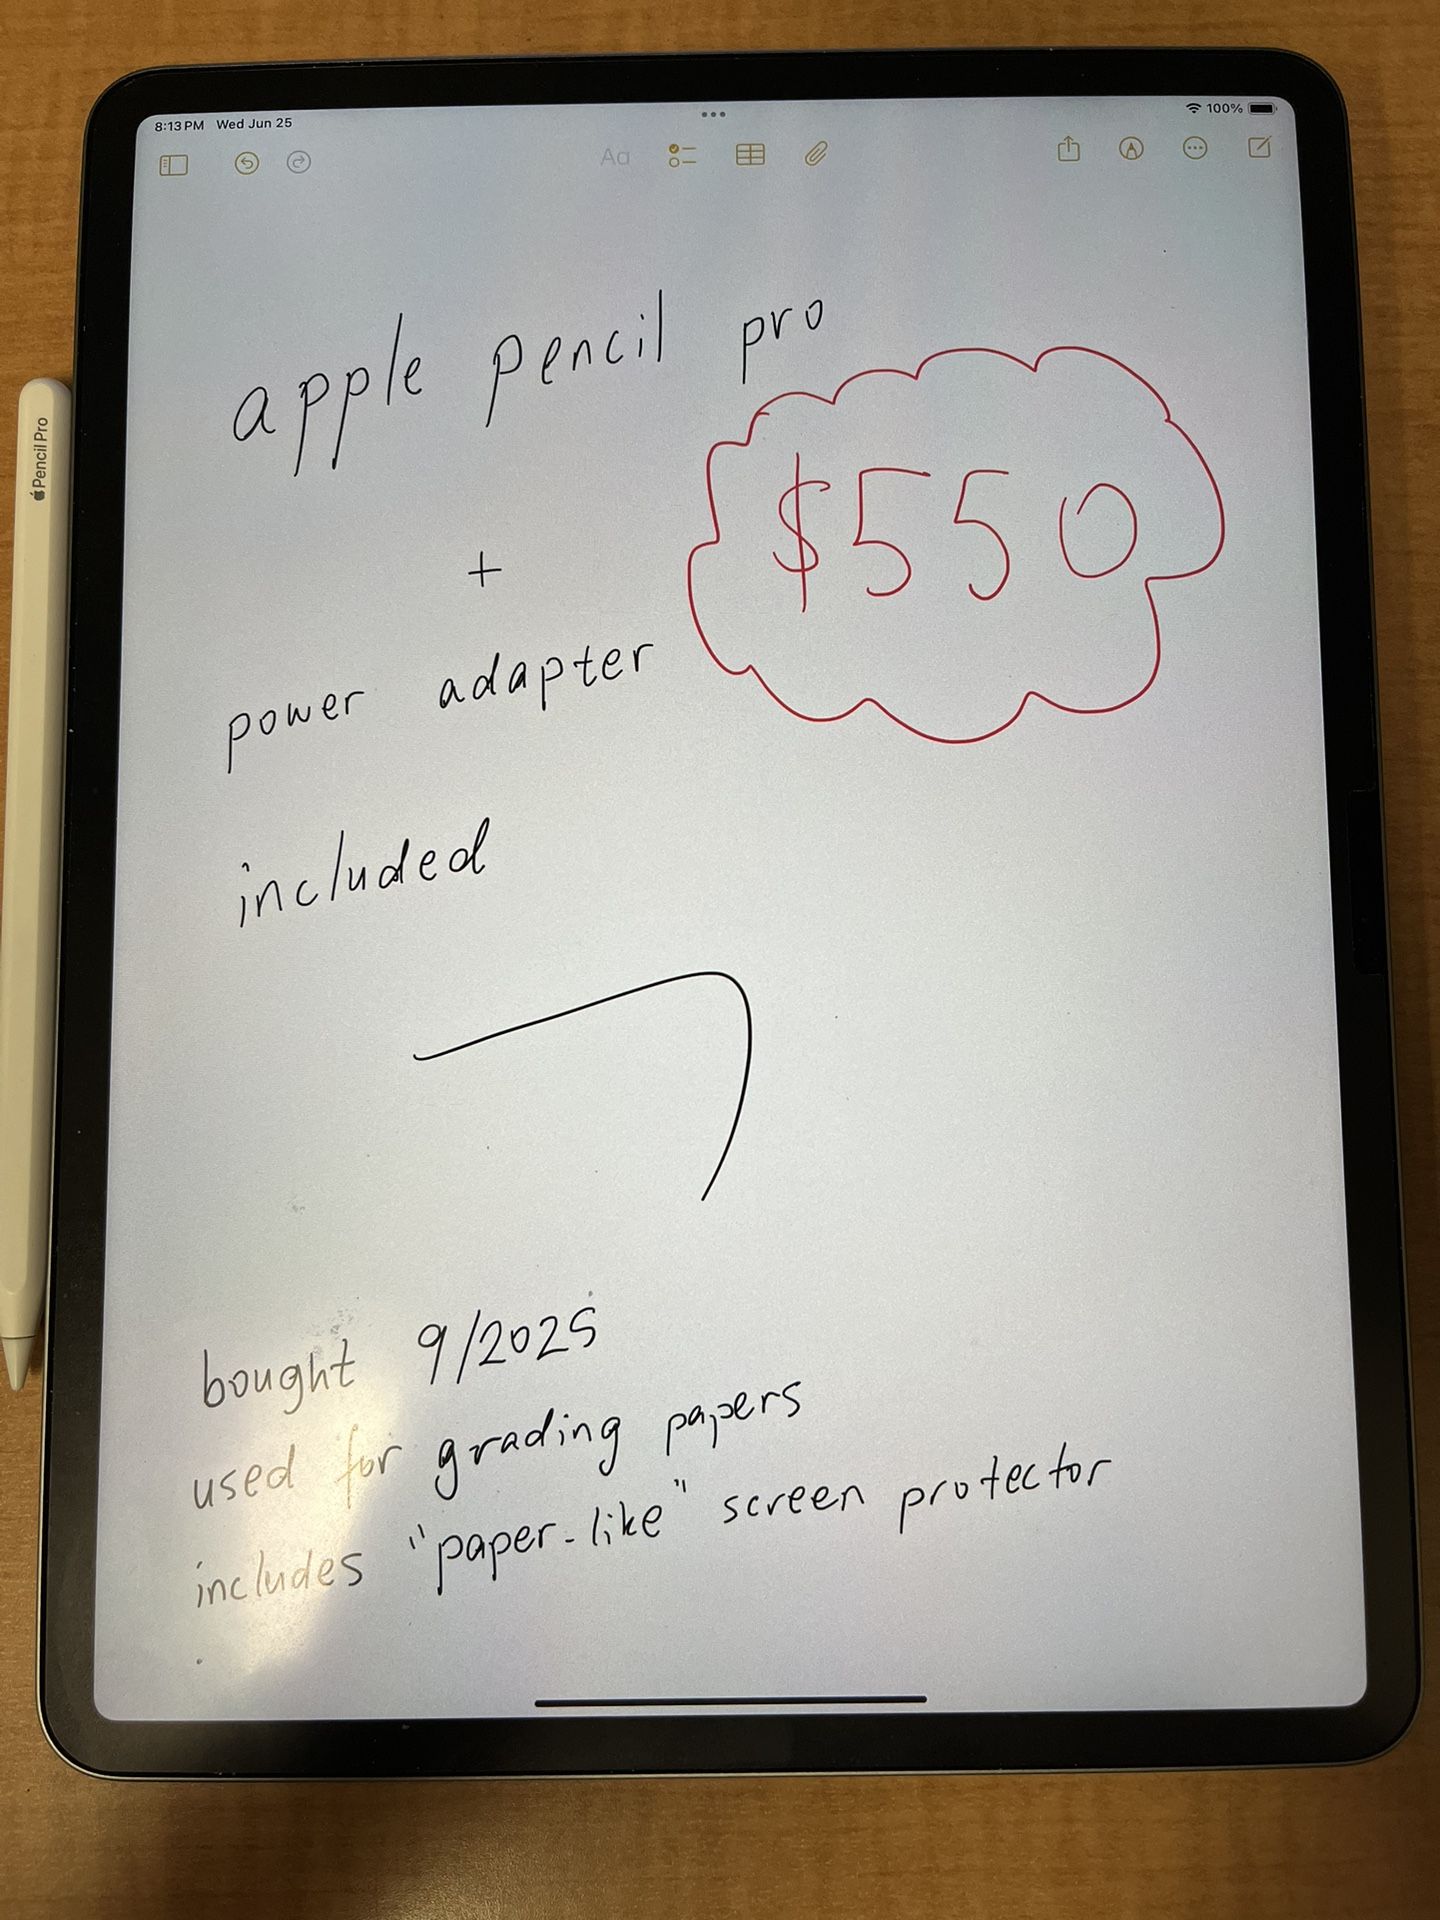 8:13 PM Wed Jun 25
100%
Aa
apple pencil pro
$550
+
power adapter
included
Pencil Pro
bought 9/2025
used for grading papers
includes "paper-like" screen protector